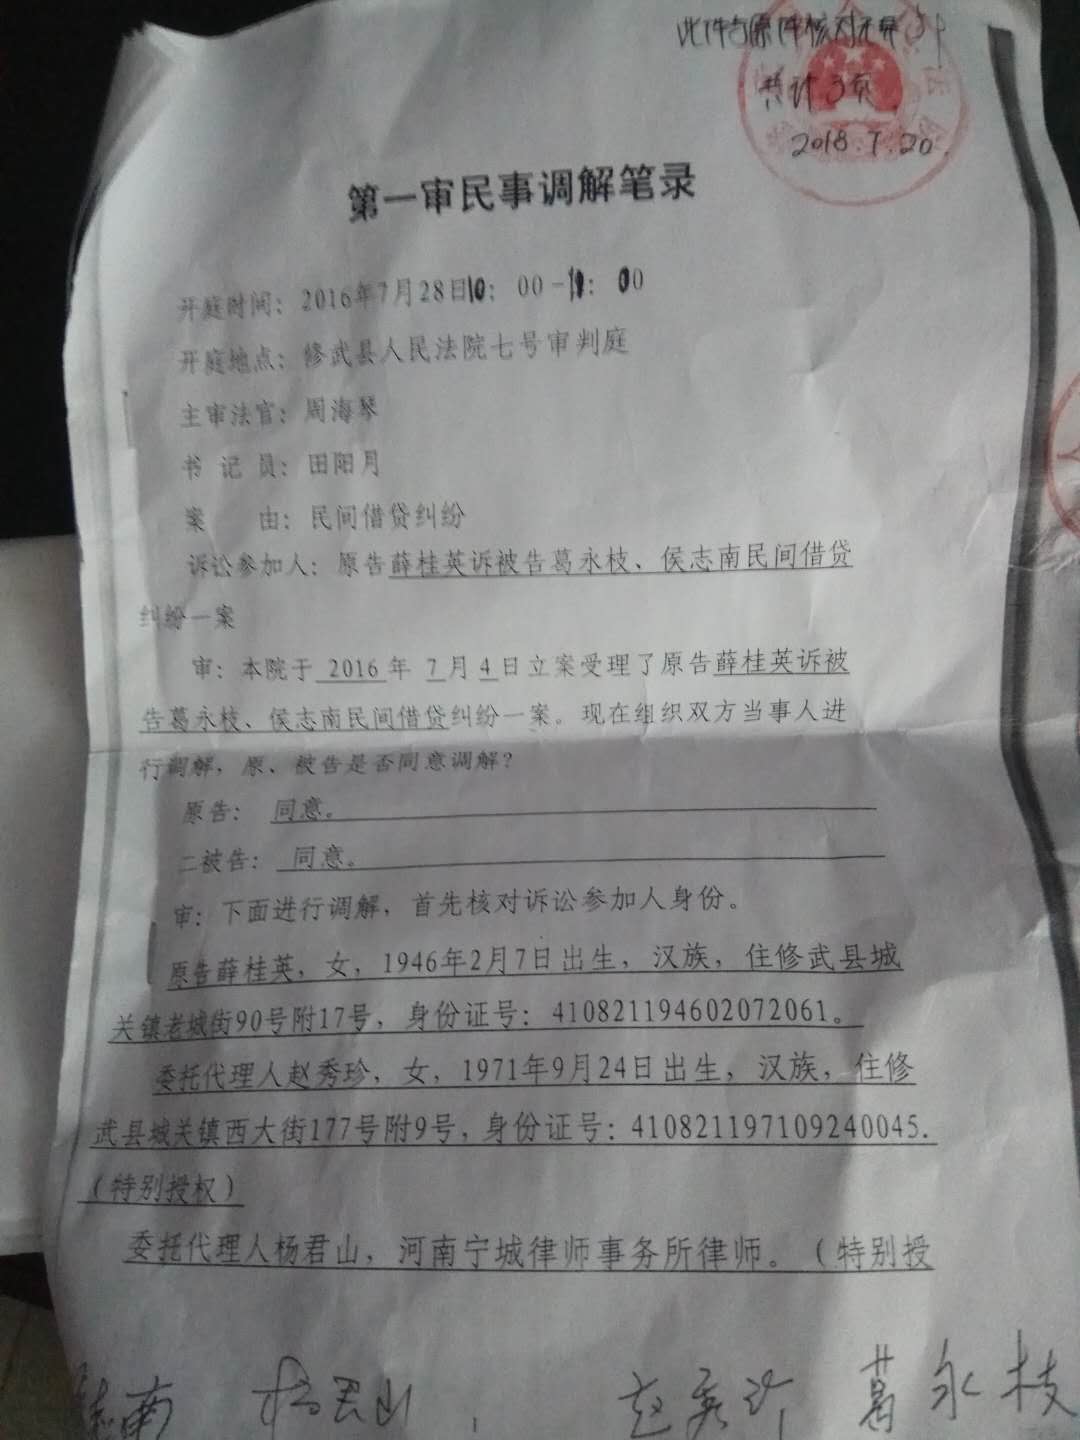 此件与原件核对无异
共计3页
2018.7.20.
第一审民事调解笔录
开庭时间：2016年7月28日10：00-11：00
开庭地点：修武县人民法院七号审判庭
主审法官：周海琴
书 记 员：田阳月
案 由：民间借贷纠纷
诉讼参加人：原告薛桂英诉被告葛永枝、侯志南民间借贷
纠纷一案
审：本院于 2016 年 7 月 4 日立案受理了原告薛桂英诉被
告葛永枝、侯志南民间借贷纠纷一案。现在组织双方当事人进
行调解，原、被告是否同意调解？
原告： 同意。
二被告： 同意。
审：下面进行调解，首先核对诉讼参加人身份。
原告薛桂英，女，1946年2月7日出生，汉族，住修武县城
关镇老城街90号附17号，身份证号：410821194602072061。
委托代理人赵秀珍，女，1971年9月24日出生，汉族，住修
武县城关镇西大街177号附9号，身份证号：410821197109240045.
（特别授权）
委托代理人杨君山，河南宁城律师事务所律师。（特别授
志南 杨君山 赵秀珍 葛永枝